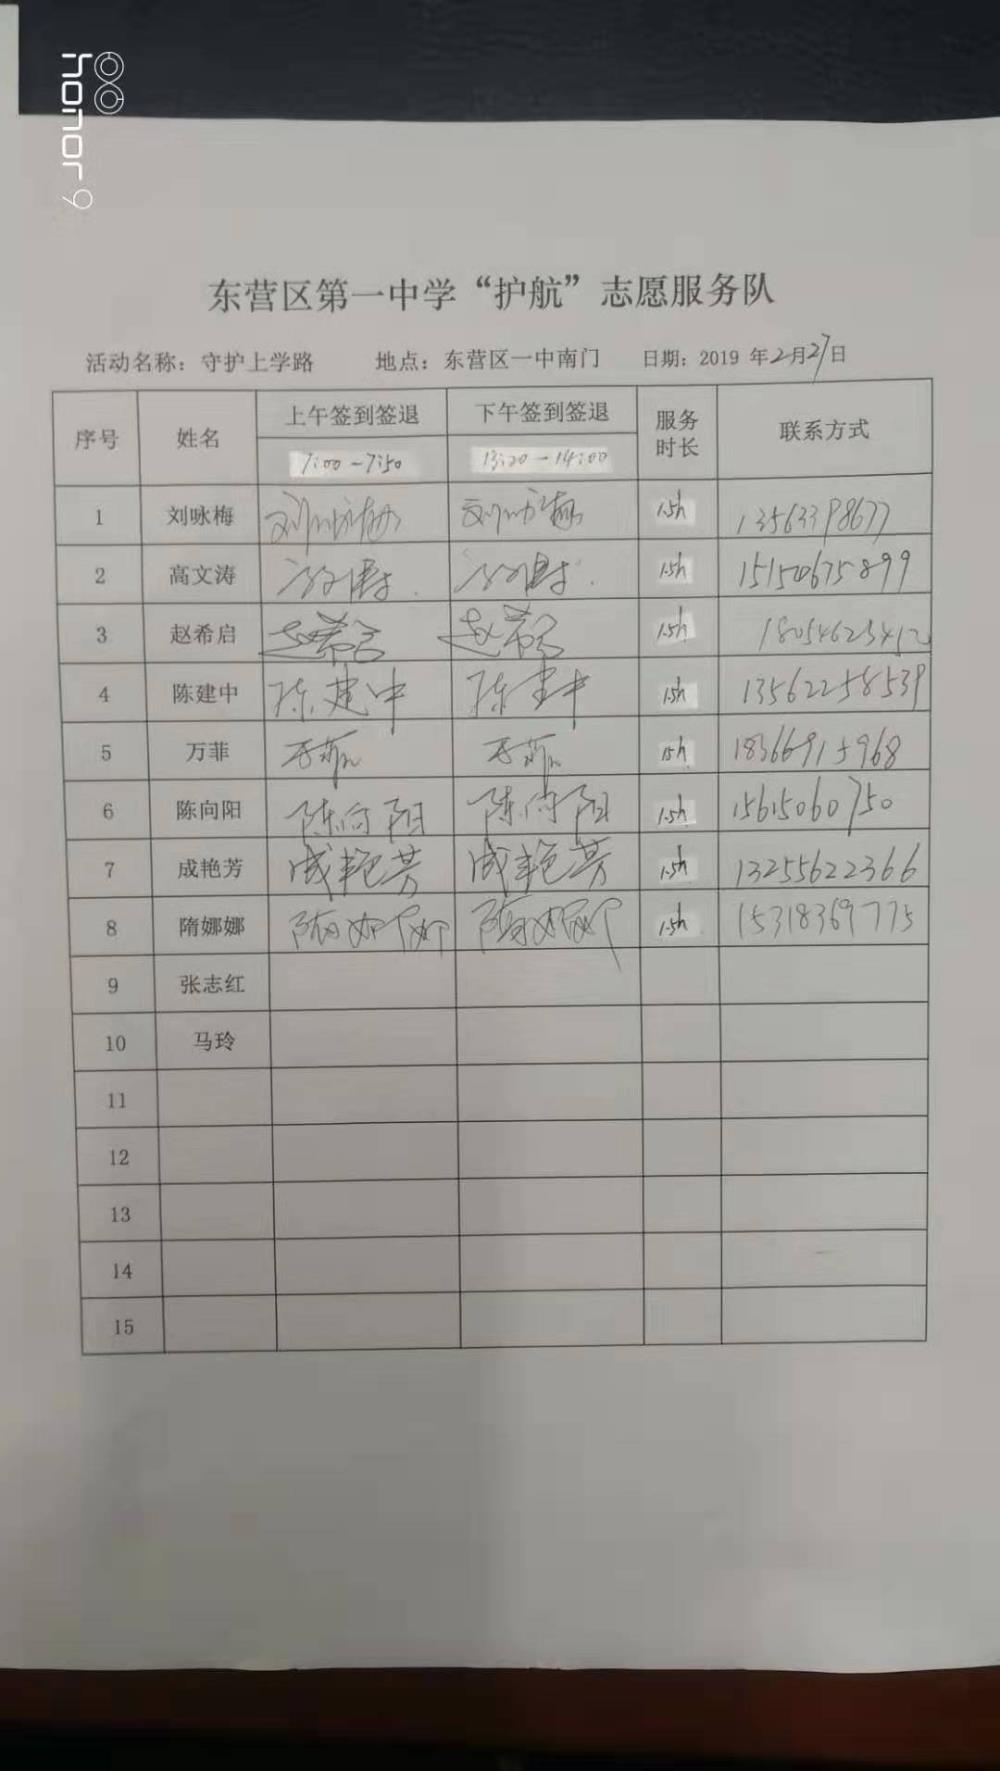 honor 9
东营区第一中学“护航”志愿服务队
活动名称：守护上学路 地点：东营区一中南门 日期：2019 年2月27日
序号 姓名 上午签到签退 下午签到签退 服务时长 联系方式
7:00-7:50 13:20-14:00
1 刘咏梅 刘咏梅 刘咏梅 1.5h 13563398677
2 高文涛 高文涛 高文涛 1.5h 15150675899
3 赵希启 赵希启 赵希启 1.5h 18054623412
4 陈建中 陈建中 陈建中 1.5h 13562258539
5 万菲 万菲 万菲 1.5h 18366915968
6 陈向阳 陈向阳 陈向阳 1.5h 15615060750
7 成艳芳 成艳芳 成艳芳 1.5h 13255622366
8 隋娜娜 隋娜娜 隋娜娜 1.5h 15318369775
9 张志红
10 马玲
11
12
13
14
15